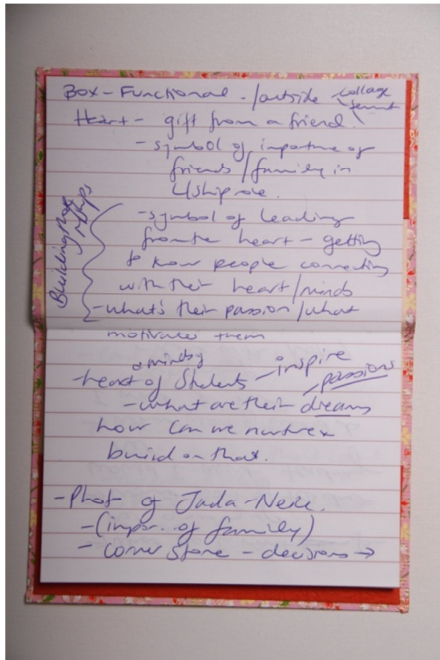 Box - Functional - /outside collage
Heart - gift from a friend.
- symbol of importance of
friends/family in
L'ship role.
- symbol of leading
from the heart - getting
to know people connecting
with their heart/minds
- what's their passion/what
motivates them
Building
& minds of
- heart of Students - inspire
passions
- what are their dreams
how can we nurture
build on that.
- Phot of Jada-
- (impor. of family)
- corner stone - decisions →